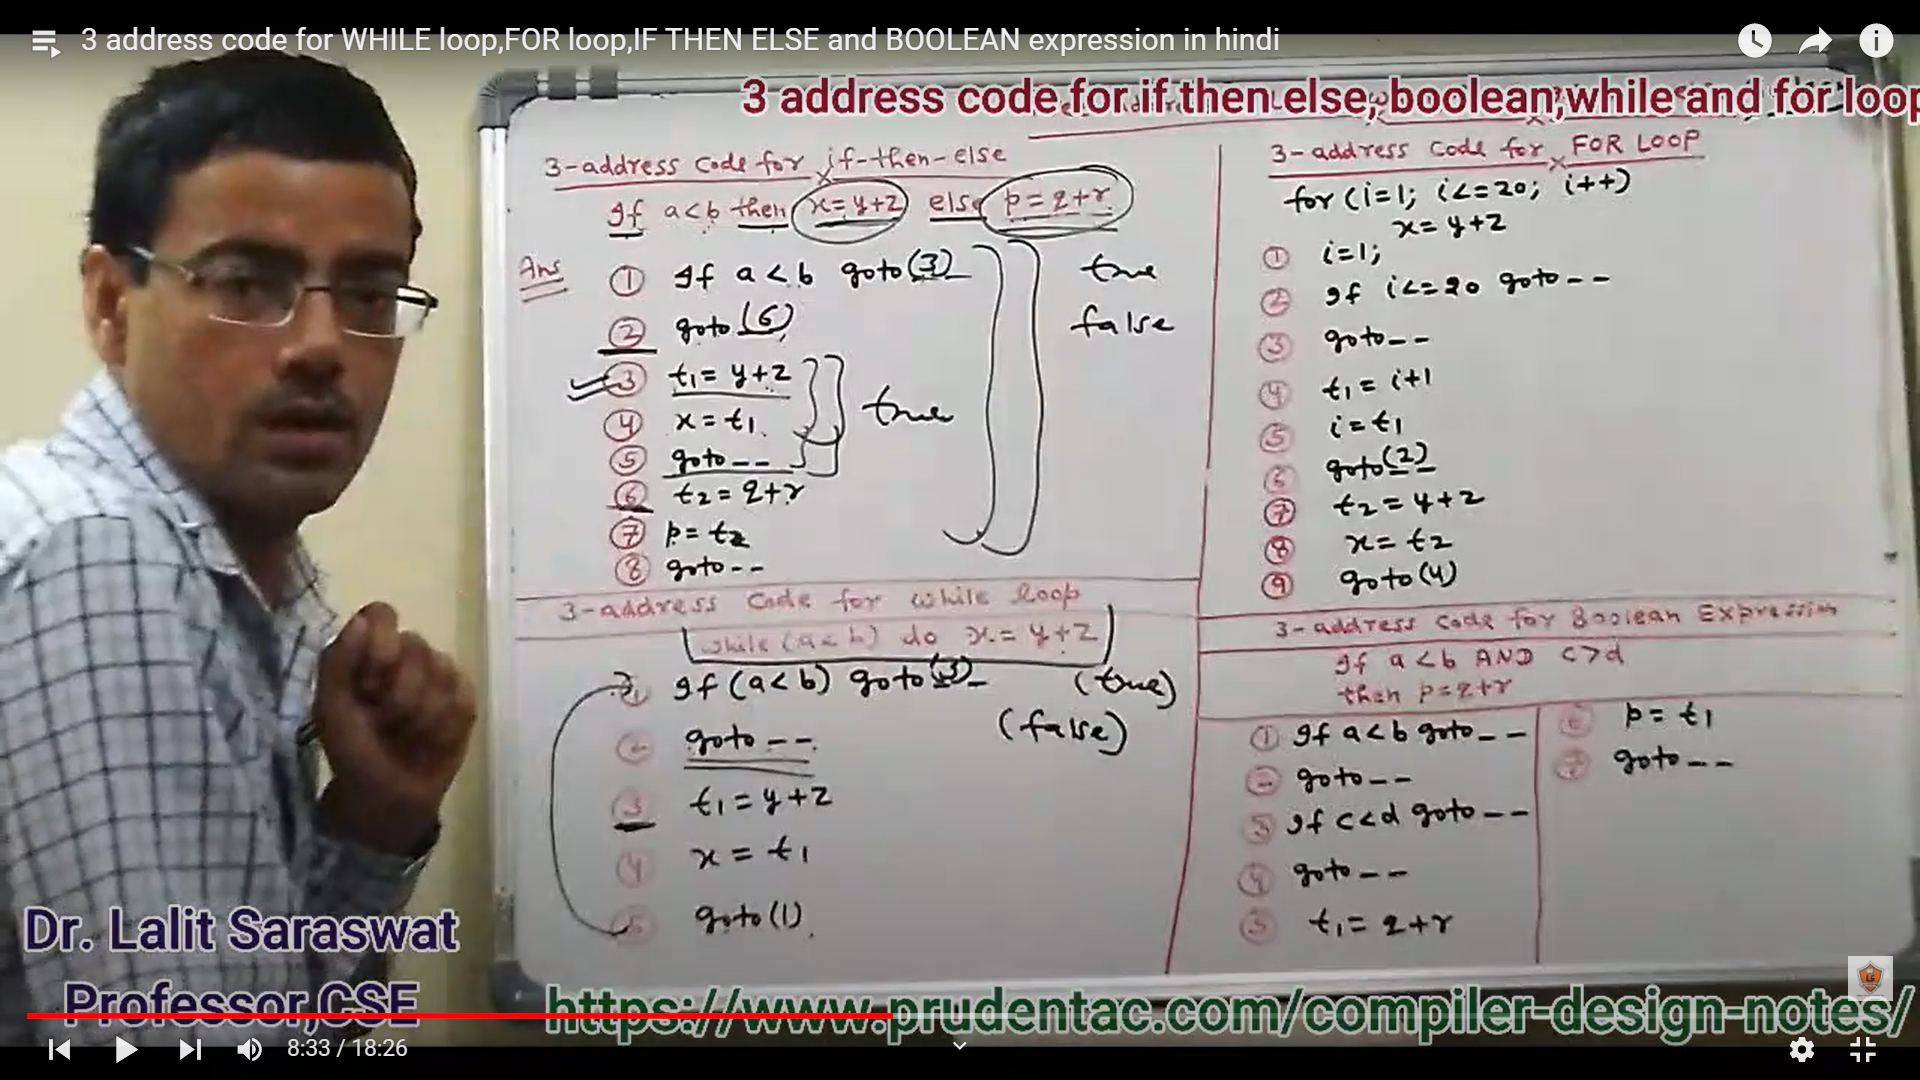 3 address code for WHILE loop,FOR loop,IF THEN ELSE and BOOLEAN expression in hindi
3 address code for if then else, boolean,while and for loop
3-address Code for if-then-else
If a<b then x=y+z else p=q+r
Ans
① If a<b goto (3)
② goto (6)
③ t1=y+z
④ x=t1
⑤ goto--
⑥ t2=q+r
⑦ p=t2
⑧ goto--
true
false
true
3-address Code for while loop
while(a<b) do x=y+z
① If (a<b) goto (3) (true)
② goto -- (false)
③ t1=y+z
④ x=t1
⑤ goto(1)
3-address Code for FOR LOOP
for(i=1; i<=20; i++)
x=y+z
① i=1;
② If i<=20 goto--
③ goto--
④ t1=i+1
⑤ i=t1
⑥ goto(2)
⑦ t2=y+z
⑧ x=t2
⑨ goto(4)
3-address Code for Boolean Expression
If a<b AND c>d
then p=q+r
① If a<b goto--
② goto--
③ If c<d goto--
④ goto--
⑤ t1=q+r
⑥ p=t1
⑦ goto--
Dr. Lalit Saraswat
Professor,CSE
https://www.prudentac.com/compiler-design-notes/
8:33 / 18:26